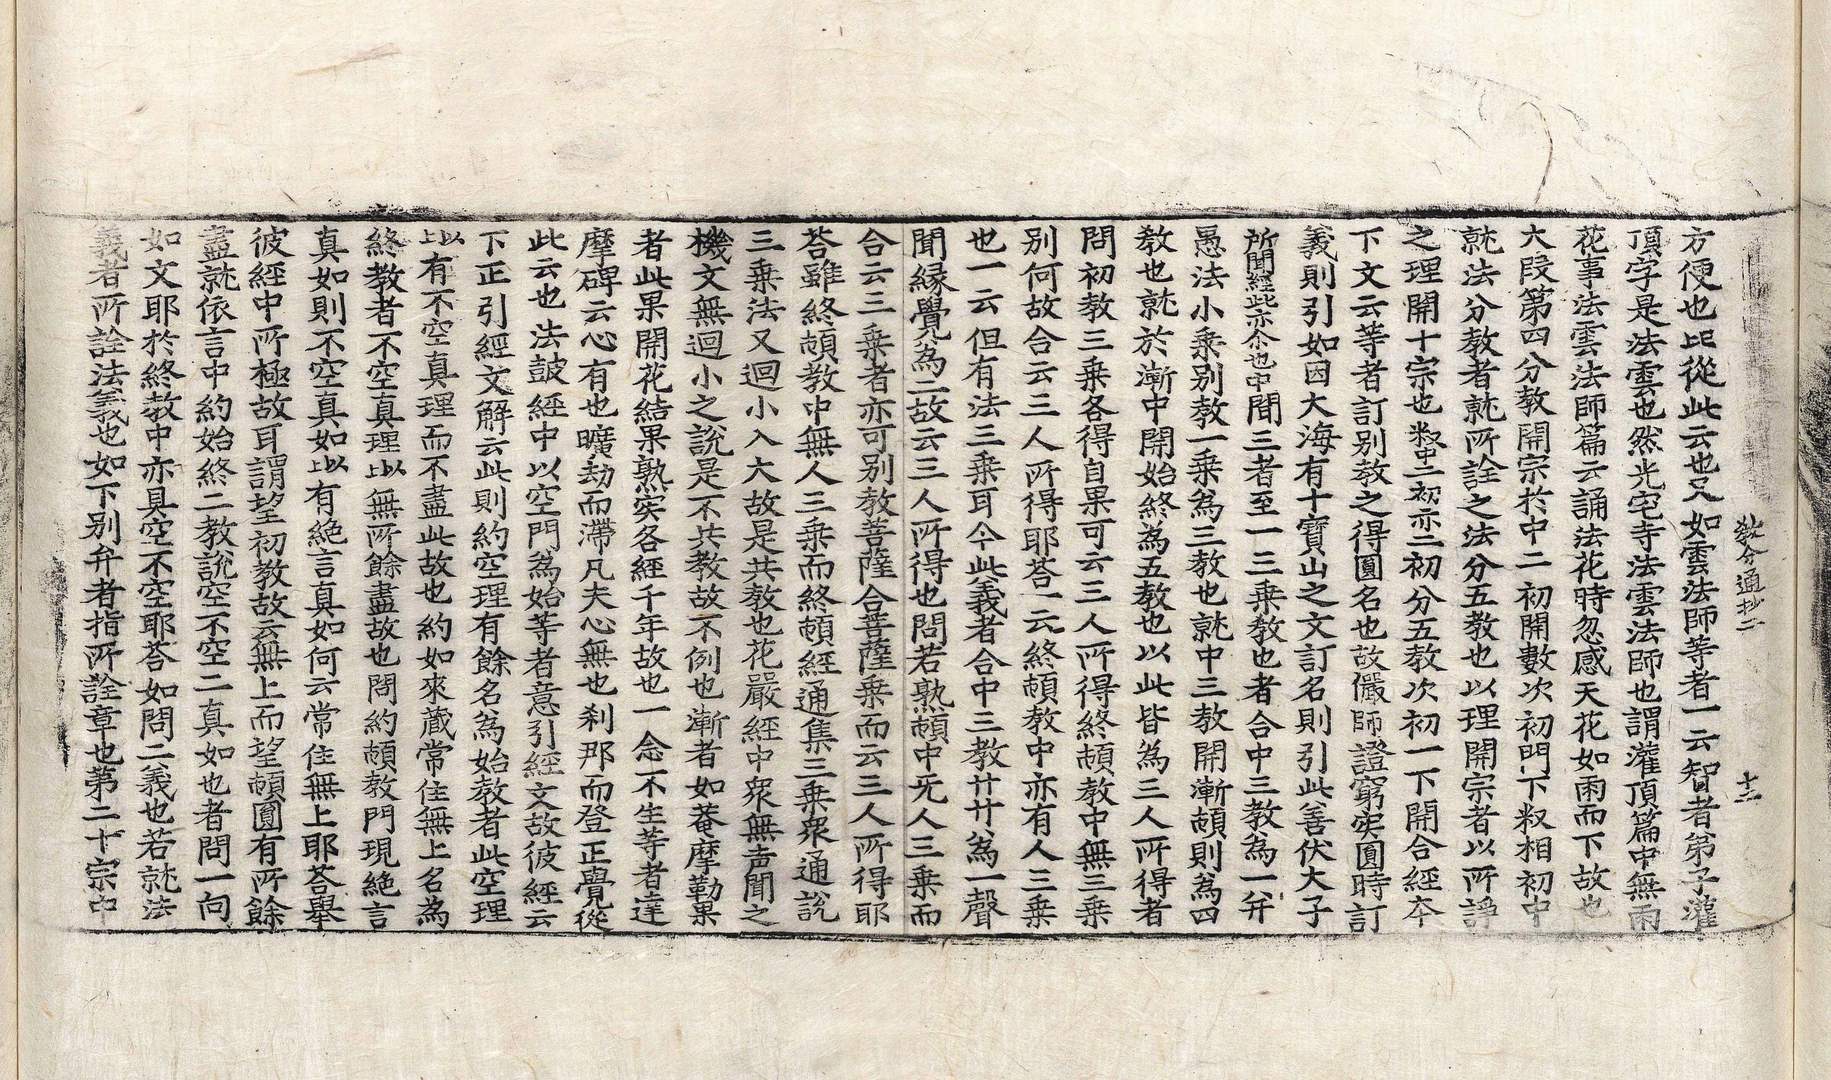 教分通抄二　十二
方便也比從此云也又如雲法師等者一云智者弟子灌
頂字是法雲也然光宅寺法雲法師也謂灌頂篇中無雨
花事法雲法師篇云誦法花時忽感天花如雨而下故也
大段第四分教開宗於中二初開數次初門下釈相初中
就法分教者就所詮之法分五教也以理開宗者以所諍
之理開十宗也釈中二初亦二初分五教次初一下開合經夲
下文云等者訂別教之得圓名也故儼師證窮实圓時訂
義則引如因大海有十寶山之文訂名則引此善伏大子
所聞經此亦尒也中間三者至一三乗教也者合中三教為一并
愚法小乗別教一乗為三教也就中三教開漸頓則為四
教也就於漸中開始終為五教也以此皆為三人所得者
問初教三乗各得自果可云三人所得終頓教中無三乗
別何故合云三人所得耶荅一云終頓教中亦有人三乗
也一云但有法三乗耳今此義者合中三教廾廾為一聲
聞縁覺為二故云三人所得也問若熟頓中无人三乗而
合云三乗者亦可別教菩薩合菩薩乗而云三人所得耶
荅雖終頓教中無人三乗而終頓經通集三乗衆通說
三乗法又迴小入大故是共教也花嚴經中衆無声聞之
機文無迴小之說是不共教故不例也漸者如菴摩勒果
者此果開花結果熟实各經千年故也一念不生等者達
摩碑云心有也曠劫而滯凡夫心無也刹那而登正覺從
此云也法鼓經中以空門為始等者意引經文故彼經云
下正引經文解云此則約空理有餘名為始教者此空理
上以有不空真理而不盡此故也約如來藏常住無上名為
終教者不空真理上以無所餘盡故也問約頓教門現絶言
真如則不空真如上以有絶言真如何云常住無上耶荅舉
彼經中所極故耳謂望初教故云無上而望頓圓有所餘
盡就依言中約始終二教說空不空二真如也者問一向
如文耶於終教中亦具空不空耶荅如問二義也若就法
義者所詮法義也如下別弁者指所詮章也第二十宗中